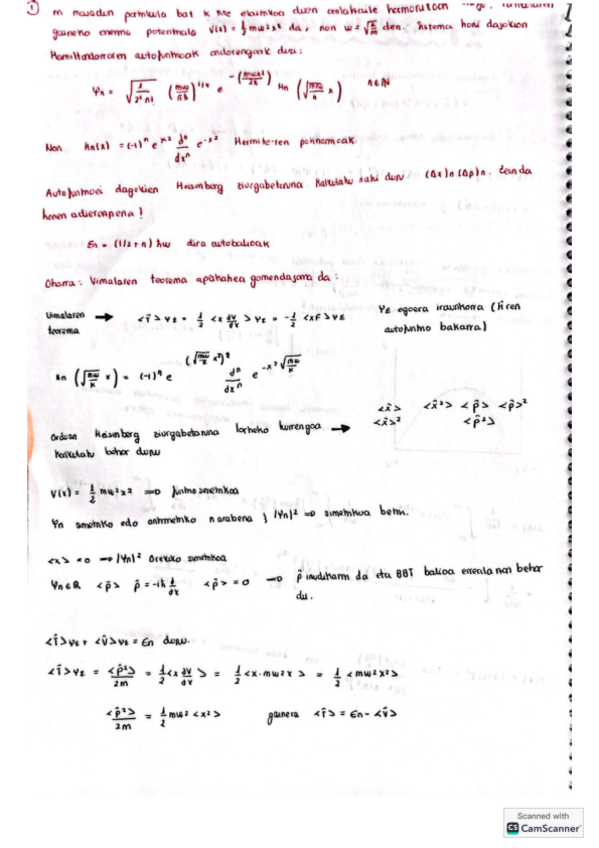 ① m masadun partikula bat k
gaineko energia potentziala V(x) = ½ mω²x² da, non ω = √(k/m) den. Sistema honi dagokion
Hamiltondarraren autofuntzioak ondorengoak dira:
Ψn = √(1/(2ⁿ n!)) (mω/πħ)^(1/4) e^(-(mωx²/2ħ)) Hn (√(mω/ħ) x) n∈ℕ
Non Hn(x) = (-1)ⁿ e^(x²) dⁿ/dxⁿ e^(-x²) Hermite-ren polinomioak
Autofuntzioei dagokien Heisenberg ziurgabetasuna kalkulatu nahi dugu (Δx)n (Δp)n. Zein da
honen adierazpena!
En = (1/2 + n) ħω dira autobalioak
Oharra: Virialaren teorema aplikatzea gomendagarria da:
Virialaren teorema → <T̂>ΨE = ½ <x dV/dx>ΨE = -½ <xF>ΨE
ΨE egoera iraunkorra (Ĥren
autofuntzio bakarra)
Hn (√(mω/ħ) x) = (-1)ⁿ e^((√(mω/ħ) x²)²) dⁿ/dxⁿ e^(-x² √(mω/ħ))
Orduan Heisenberg ziurgabetasuna lortzeko hurrengoa →
kalkulatu behar dugu
<x̂> <x̂²> <p̂> <p̂>²
<x̂>² <p̂²>
V(x) = ½ mω²x² ⟹ funtzio simetrikoa
Ψn simetriko edo antisimetriko narabera } |Ψn|² ⟹ simetrikoa beti.
<x> = 0 → |Ψn|² simetrikoa
Ψn∈ℝ <p̂> p̂ = -iħ d/dx <p̂> = 0 ⟹ p̂ irudikaria da eta BBT balioa erreala izan behar
du.
<T̂>ΨE + <V̂>ΨE = En dugu.
<T̂>ΨE = <p̂²>/2m = ½ <x dV/dx> = ½ <x·mω²x> = ½ <mω²x²>
<p̂²>/2m = ½ mω² <x²> gainera <T̂> = En - <V̂>
Scanned with
CS CamScanner